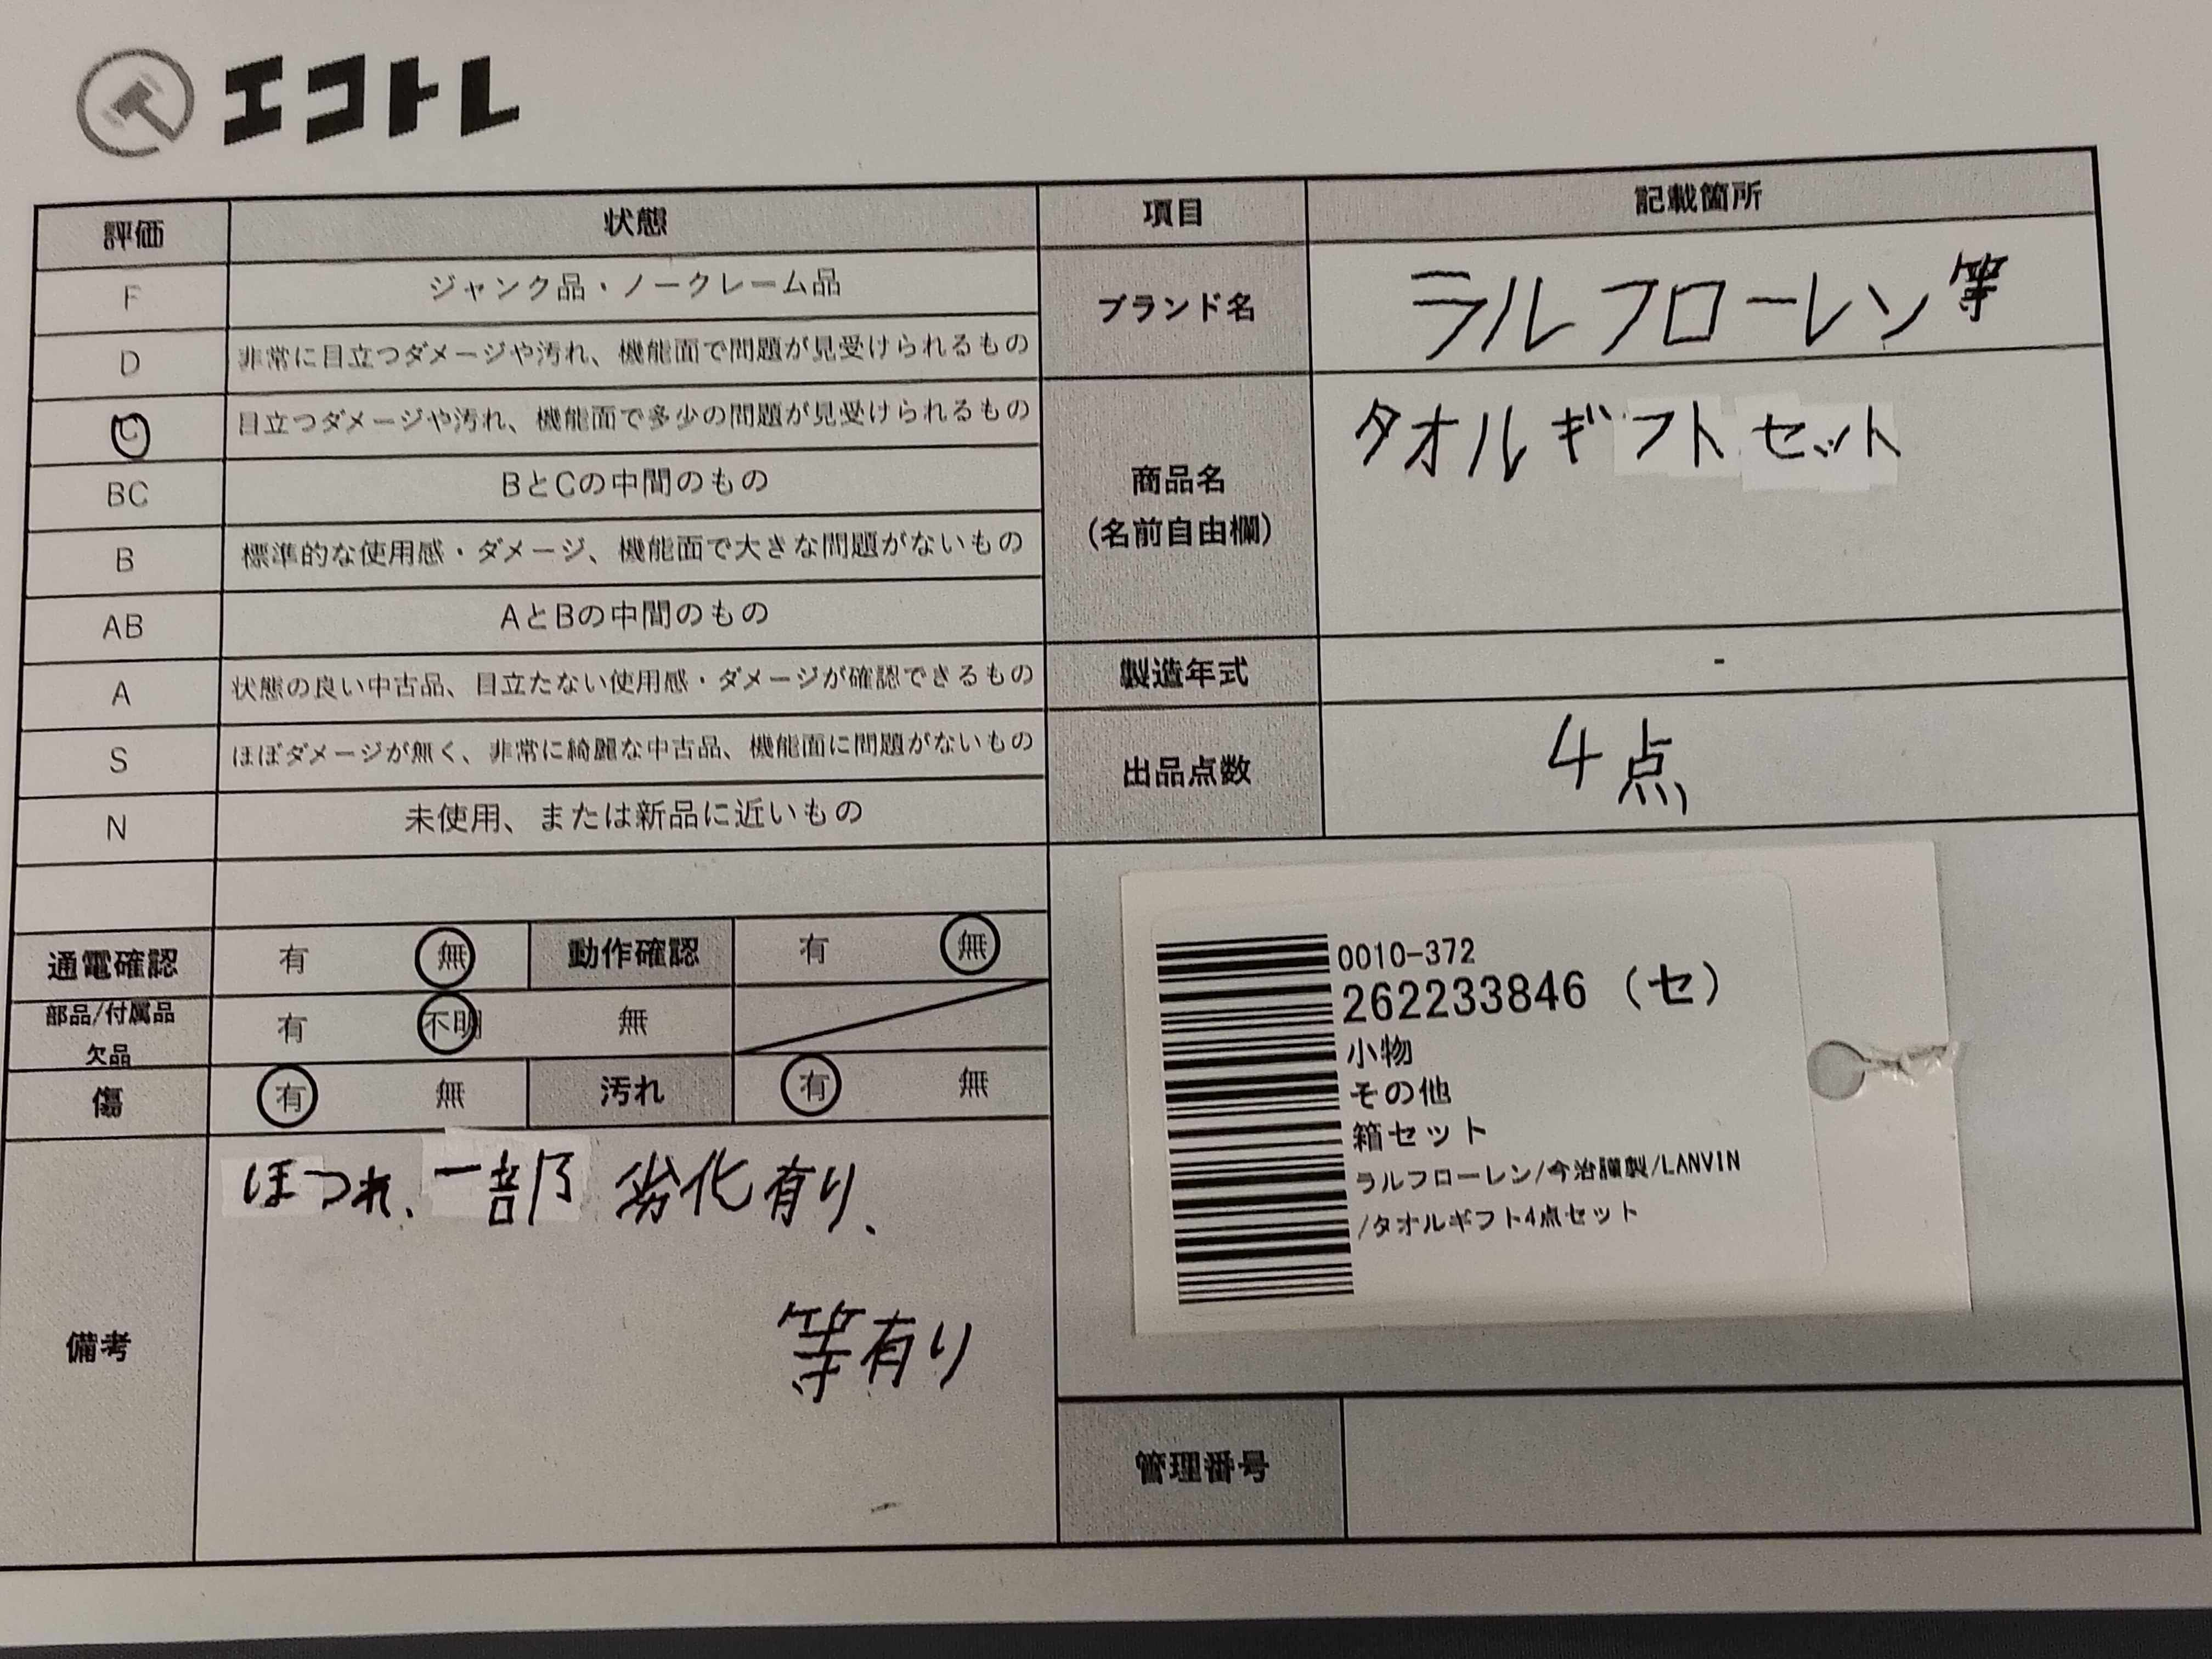 エコトレ
評価 状態 項目 記載箇所
F ジャンク品・ノークレーム品
D 非常に目立つダメージや汚れ、機能面で問題が見受けられるもの
C 目立つダメージや汚れ、機能面で多少の問題が見受けられるもの
BC BとCの中間のもの
B 標準的な使用感・ダメージ、機能面で大きな問題がないもの
AB AとBの中間のもの
A 状態の良い中古品、目立たない使用感・ダメージが確認できるもの
S ほぼダメージが無く、非常に綺麗な中古品、機能面に問題がないもの
N 未使用、または新品に近いもの
ブランド名 ラルフローレン等
商品名 タオルギフトセット
(名前自由欄)
製造年式 -
出品点数 4点
通電確認 有 無 動作確認 有 無
部品/付属品 有 不明 無
欠品
傷 有 無 汚れ 有 無
備考
ほつれ、一部劣化有り、
等有り
0010-372
262233846 (セ)
小物
その他
箱セット
ラルフローレン/今治謹製/LANVIN
/タオルギフト4点セット
管理番号